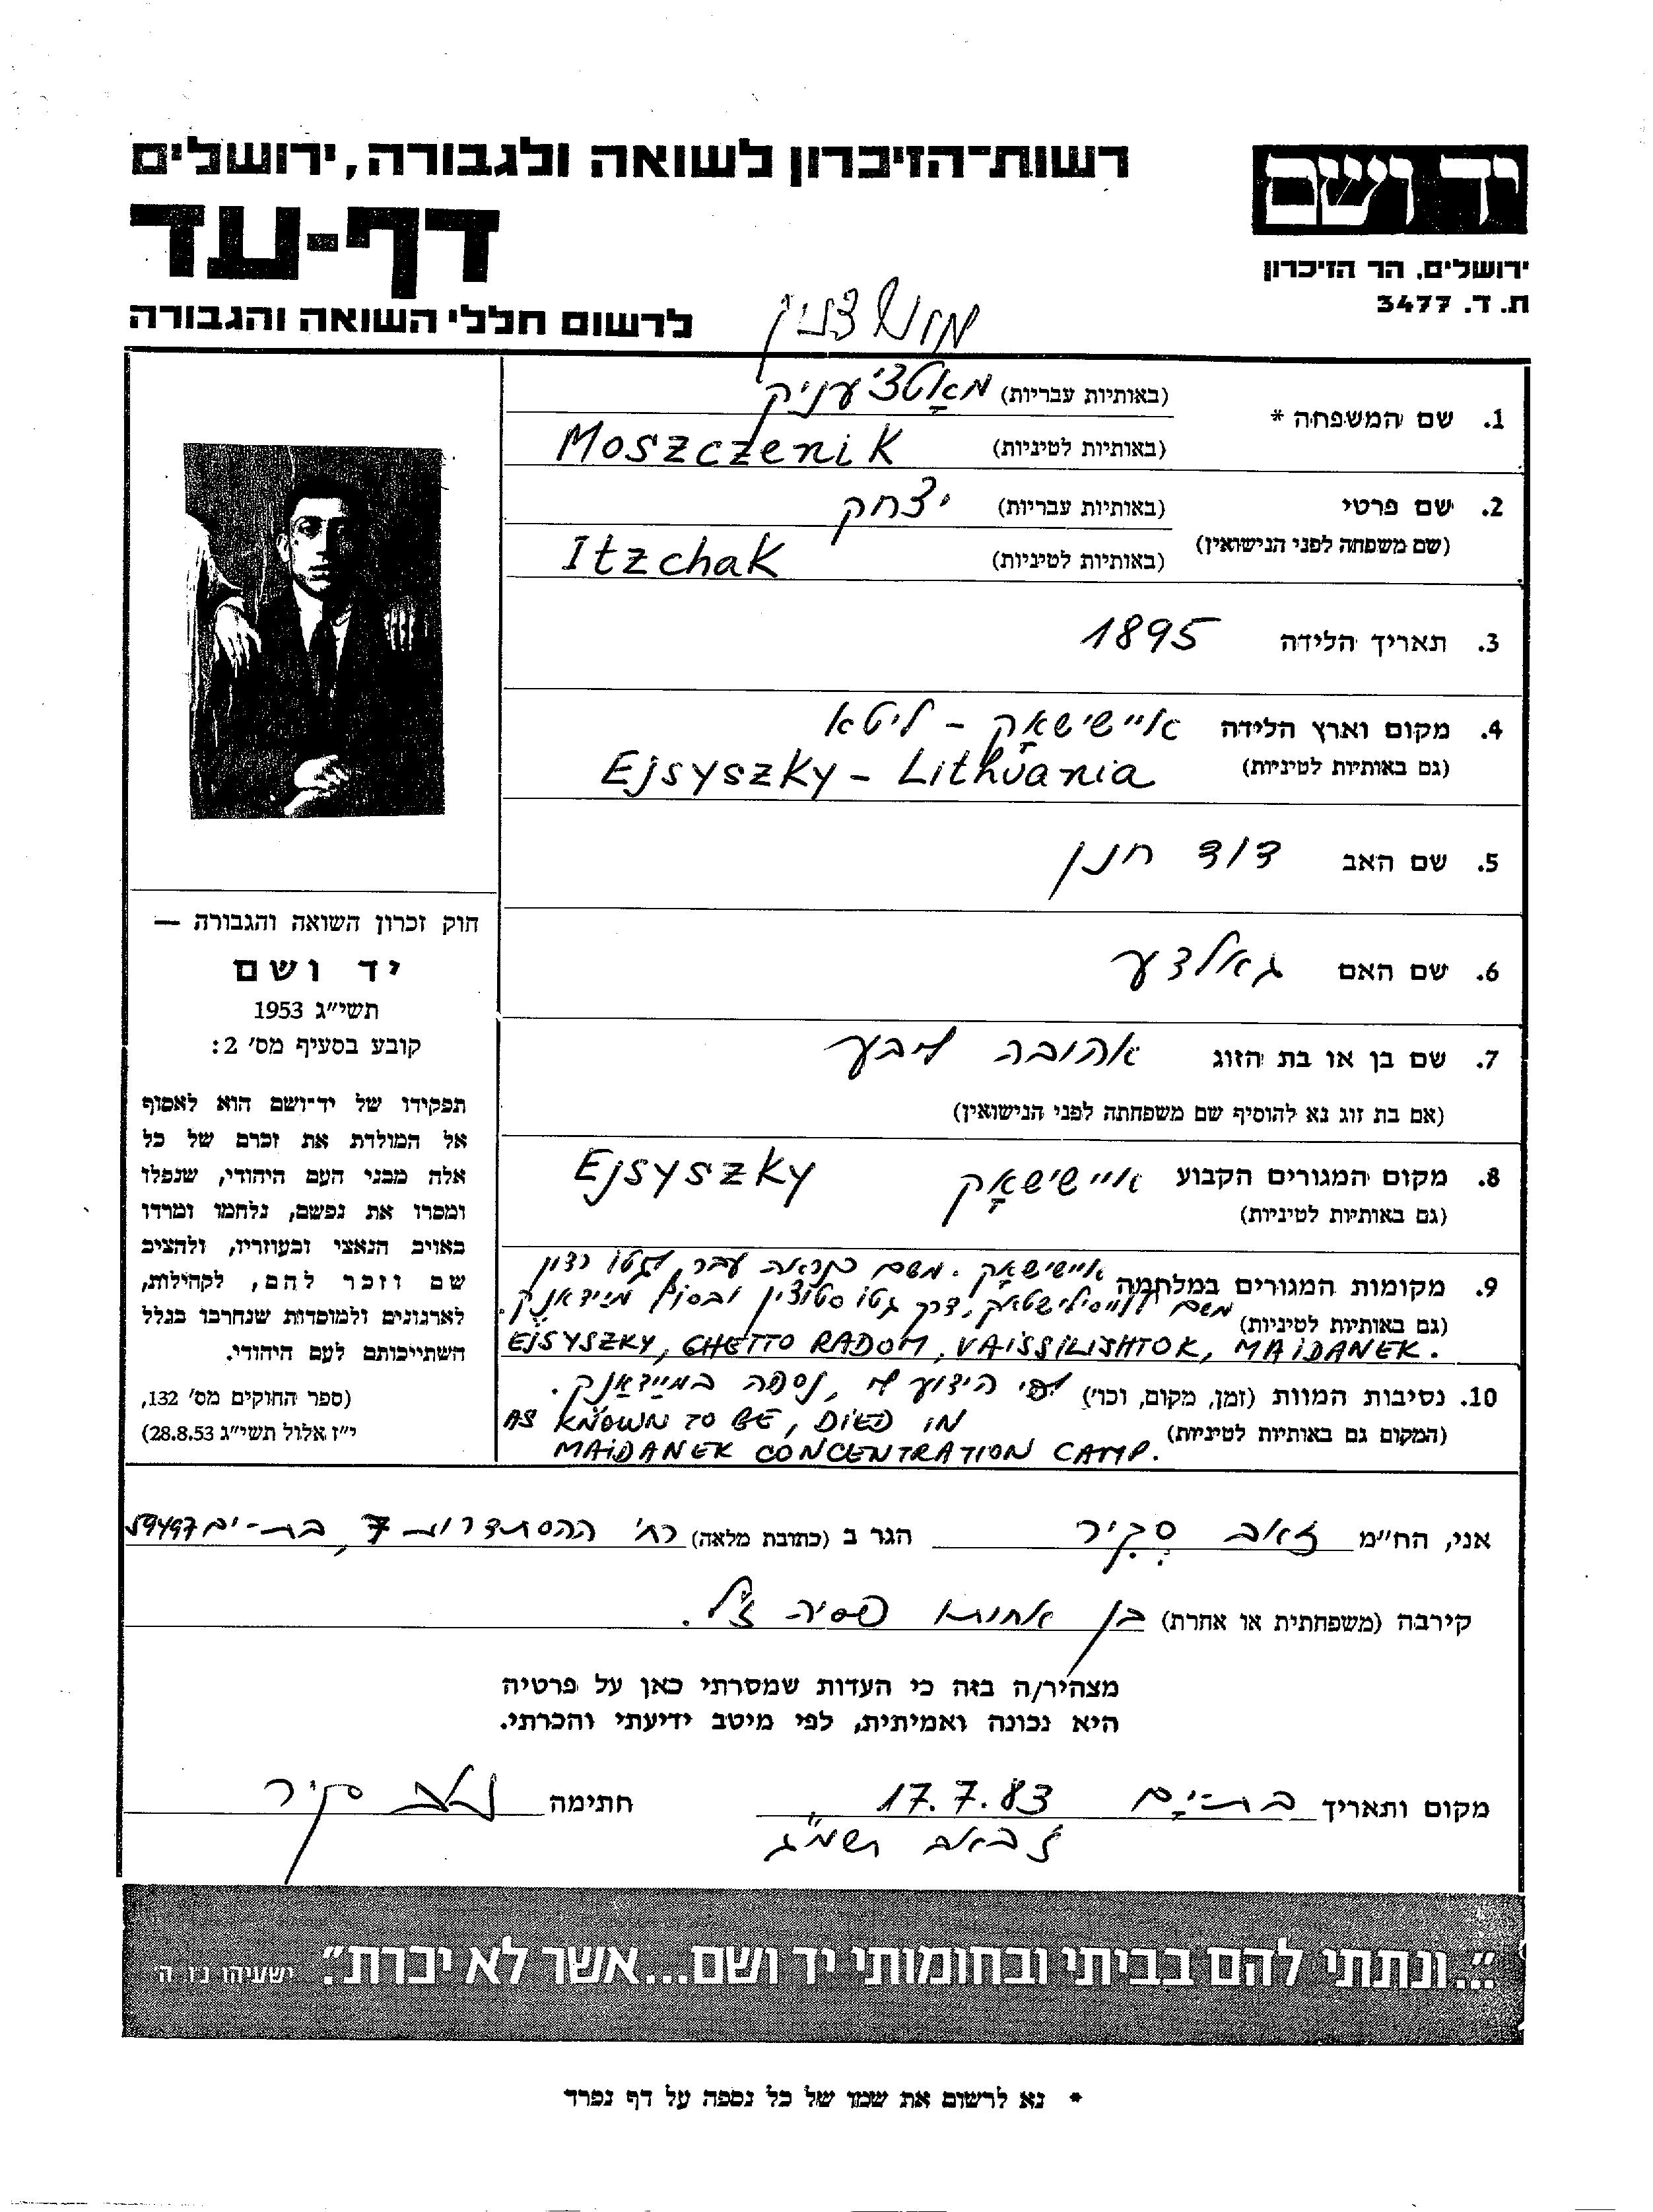 רשות־הזיכרון לשואה ולגבורה, ירושלים
יד ושם
דף-עד
ירושלים, הר הזיכרון
ת. ד. 3477
לרשום חללי השואה והגבורה
1. שם המשפחה * (באותיות עבריות) מאָשטציעניק
(באותיות לטיניות) Moszczenik
2. שם פרטי (באותיות עבריות) יצחק
(שם משפחה לפני הנישואין) (באותיות לטיניות) Itzchak
3. תאריך הלידה 1895
4. מקום וארץ הלידה אײשישאָק - ליטא
(גם באותיות לטיניות) Ejsyszky - Lithuania
5. שם האב דוד חנן
6. שם האם גאלדע
7. שם בן או בת הזוג אהובה ליבע
(אם בת זוג נא להוסיף שם משפחתה לפני הנישואין)
8. מקום המגורים הקבוע אײשישאָק Ejsyszky
(גם באותיות לטיניות)
9. מקומות המגורים במלחמה אײשישאָק. משם כנראה עבר לגטו רדון
(גם באותיות לטיניות) משם דרך גטו ובסוף מיידאנק.
EJSYSZKY, GHETTO RADOM, VAISSILISHTOK, MAIDANEK.
10. נסיבות המוות (זמן, מקום, וכו') לפי הידוע לי, נספה במײדאַנק.
(המקום גם באותיות לטיניות) AS KNOWN TO BE, DIED IN
MAIDANEK CONCENTRATION CAMP.
חוק זכרון השואה והגבורה —
יד ושם
תשי״ג 1953
קובע בסעיף מס' 2:
תפקידו של יד־ושם הוא לאסוף
אל המולדת את זכרם של כל
אלה מבני העם היהודי, שנפלו
ומסרו את נפשם, נלחמו ומרדו
באויב הנאצי ובעוזריו, ולהציב
שם וזכר להם, לקהילות,
לארגונים ולמוסדות שנחרבו בגלל
השתייכותם לעם היהודי.
(ספר החוקים מס' 132,
י״ז אלול תשי״ג 28.8.53)
אני, הח״מ זאב סְקִיר הגר ב (כתובת מלאה) רח' ההסתדרות 7, בת-ים 59497
קירבה (משפחתית או אחרת) בן אחותו פסיה ז״ל.
מצהיר/ה בזה כי העדות שמסרתי כאן על פרטיה
היא נכונה ואמיתית, לפי מיטב ידיעתי והכרתי.
מקום ותאריך בת-ים 17.7.83 חתימה זאב סקיר
ז' באב תשמ״ג
״...ונתתי להם בביתי ובחומותי יד ושם...אשר לא יכרת״. ישעיהו נ״ו ה'
* נא לרשום את שמו של כל נספה על דף נפרד